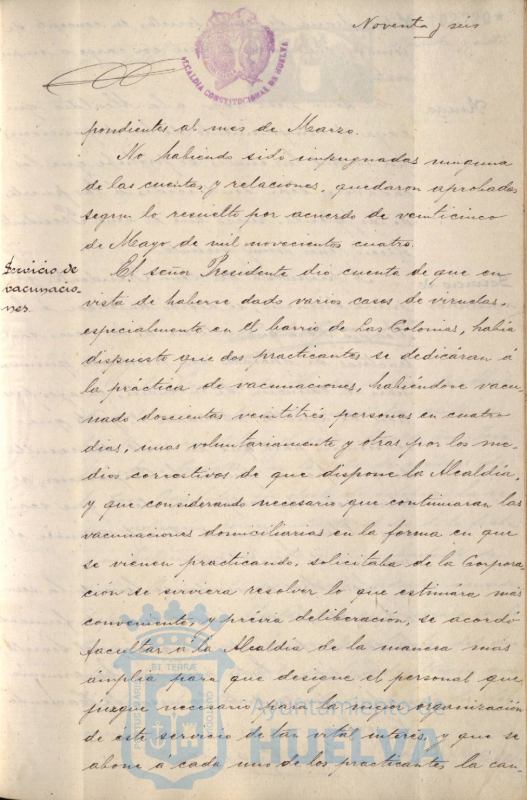 Noventa y seis
ALCALDIA CONSTITUCIONAL DE HUELVA
pondientes al mes de Marzo.
No habiendo sido impugnadas ninguna
de las cuentas y relaciones, quedaron aprobadas
segun lo resuelto por acuerdo de veinticinco
de Mayo de mil novecientos cuatro.
Servicio de
vacunacio-
nes.
El señor Presidente dió cuenta de que en
vista de haberse dado varios casos de viruelas,
especialmente en el barrio de las Colonias, había
dispuesto que dos practicantes se dedicáran á
la práctica de vacunaciones, habiéndose vacu-
nado doscientas veintitrés personas en cuatro
dias, unas voluntariamente y otras por los me-
dios correctivos de que dispone la Alcaldía,
y que considerando necesario que continuaran las
vacunaciones domiciliarias en la forma en que
se vienen practicando, solicitaba de la Corpora
ción se sirviera resolver lo que estimára más
conveniente, y prévia deliberación, se acordó
facultar á la Alcaldía de la manera más
ámplia para que designe el personal que
juzgue necesario para la mejor organización
de este servicio de tan vital interés, y que se
abone a cada uno de los practicantes la can-
PORTUS MARIS ET TERRÆ CUSTODIO
Ayuntamiento de
HUELVA